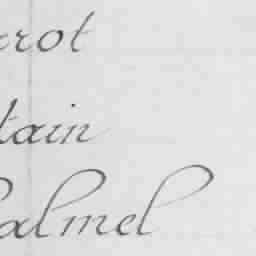 rrot
tain
almel